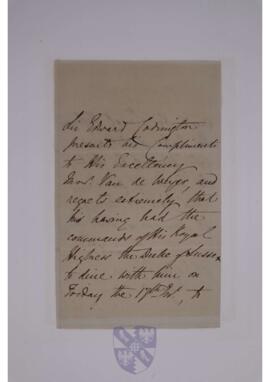 Sir Edward Codrington
presents his Compliments
to His Excellency
Monsr. Van de Weyer, and
regrets extremely that
his having had the
commands of His Royal
Highness the Duke of Sussex
to dine with him on
Friday the 17th Inst., to